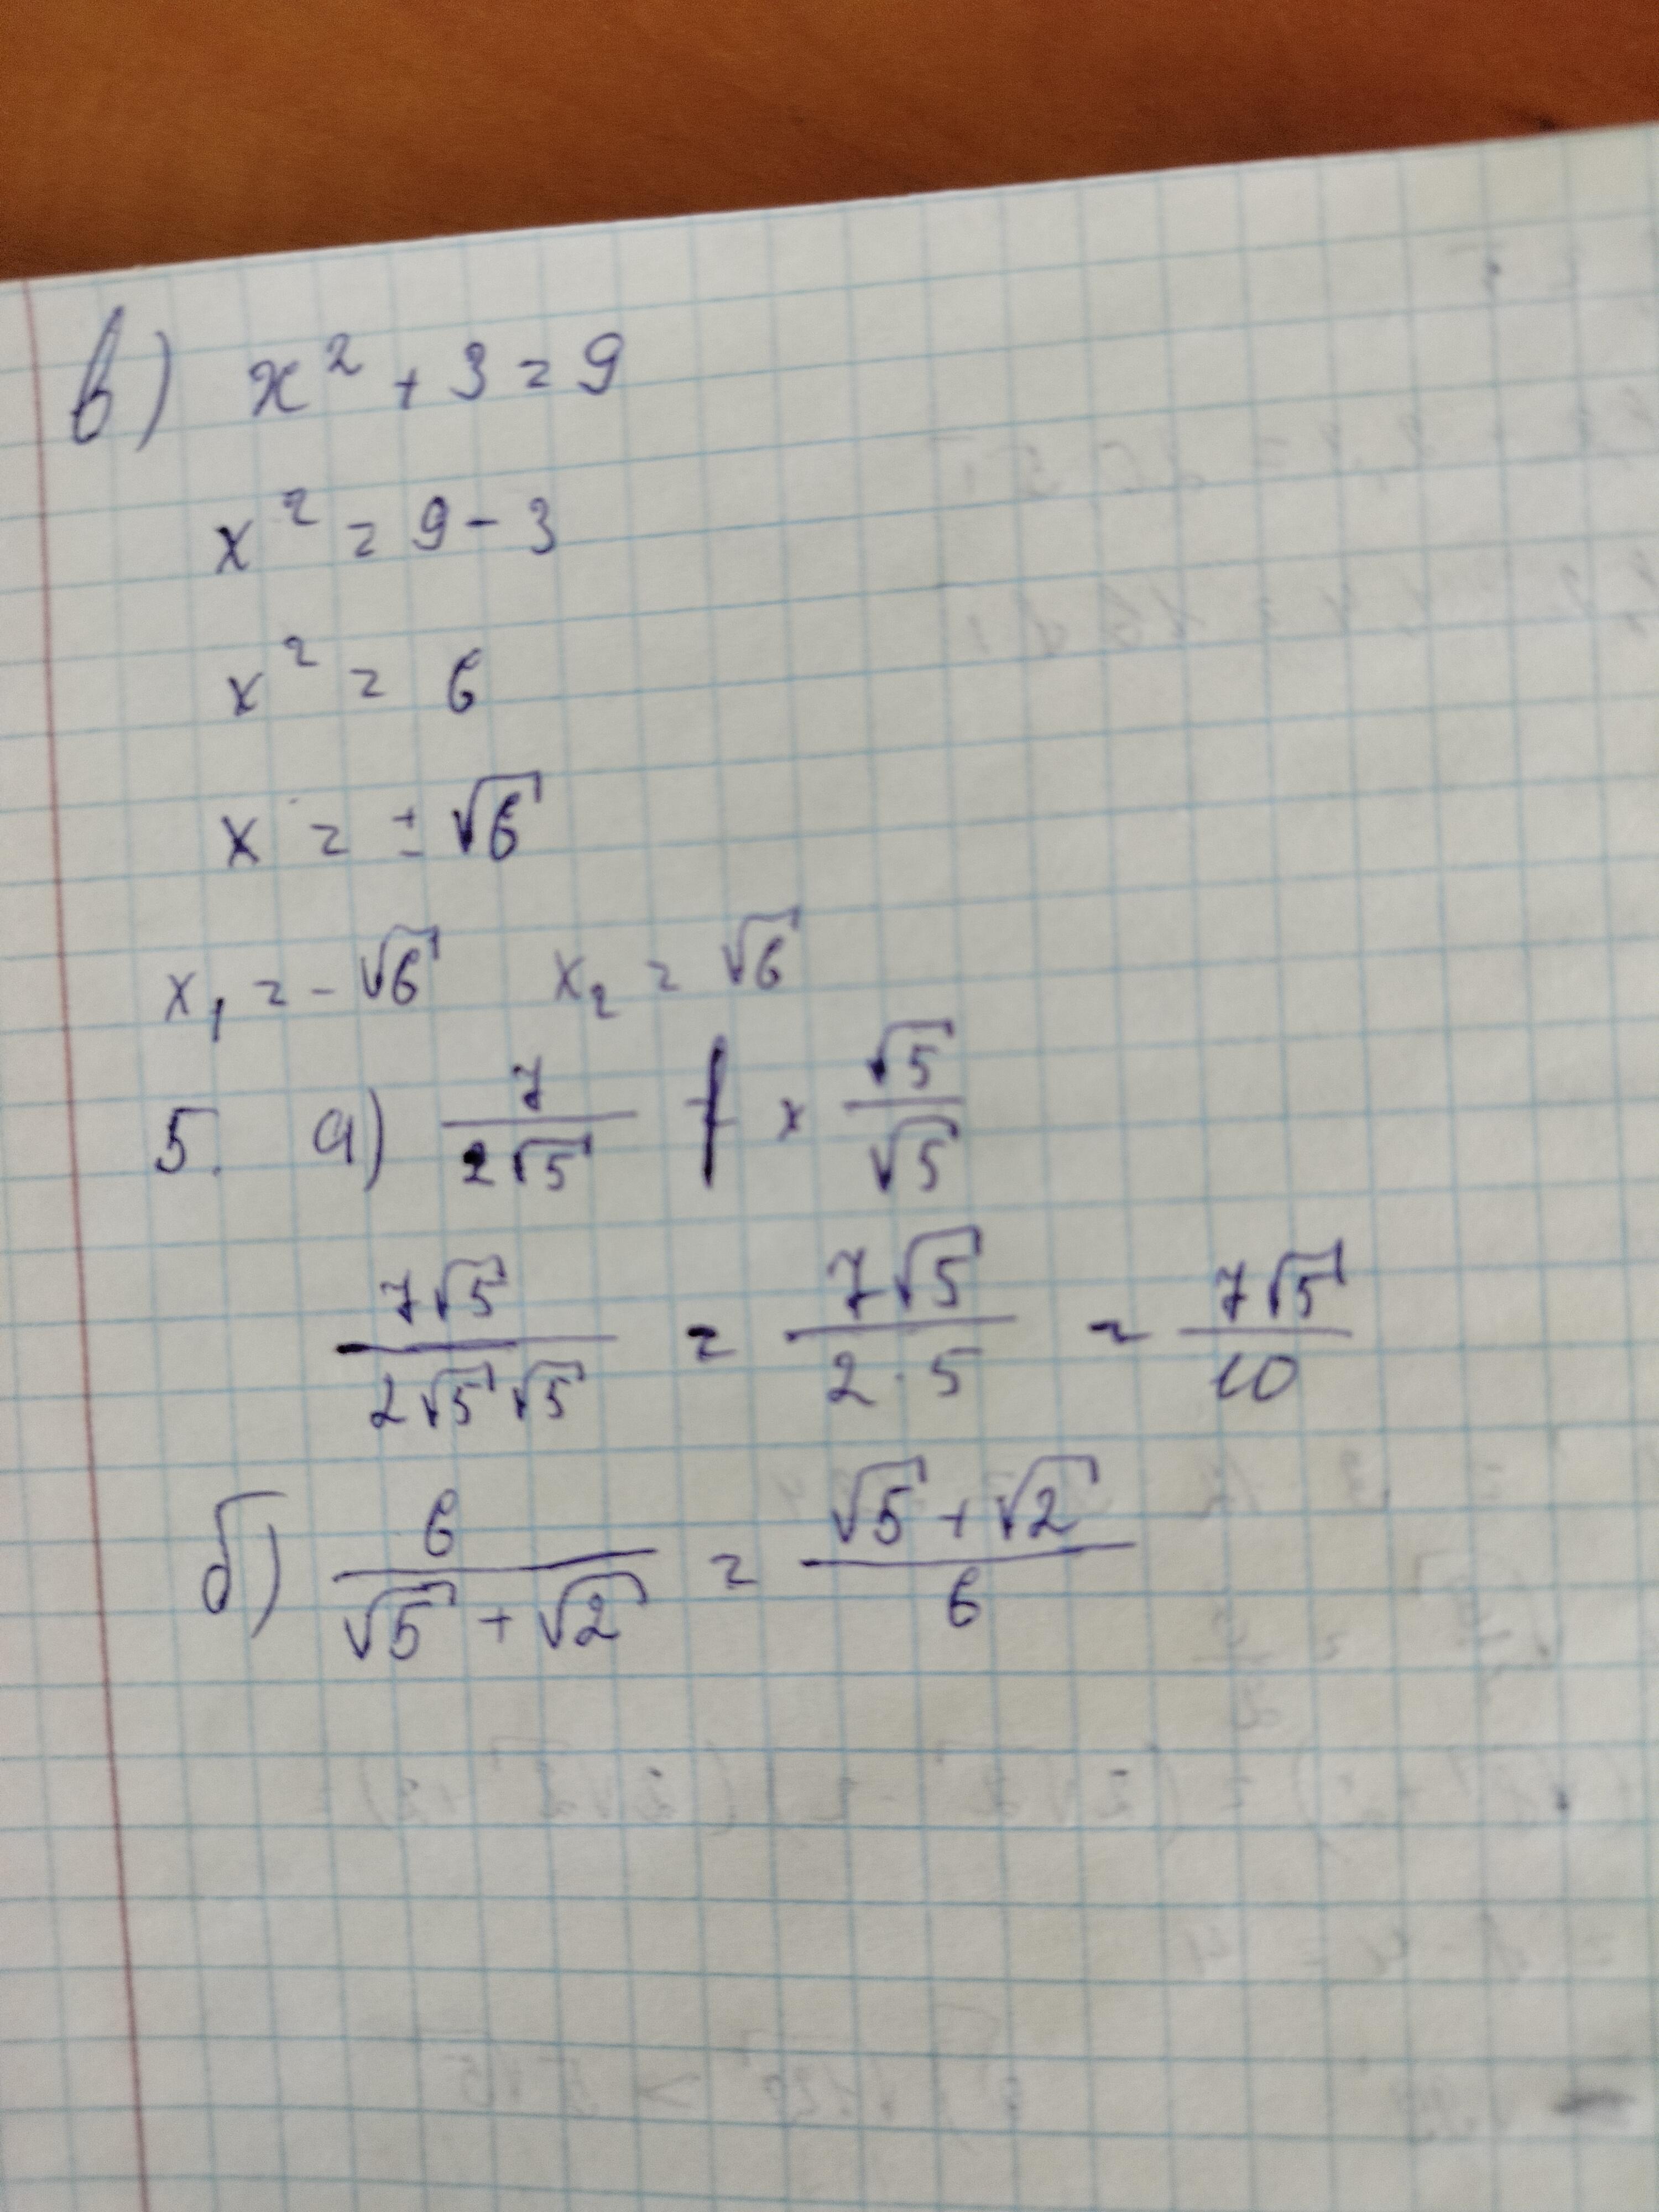 в) x² + 3 = 9
x² = 9 - 3
x² = 6
x = ± √6
x₁ = - √6 x₂ = √6
5. а) 7/(2√5) × √5/√5
7√5/(2√5√5) = 7√5/(2·5) = 7√5/10
б) 6/(√5 + √2) = (√5 + √2)/6